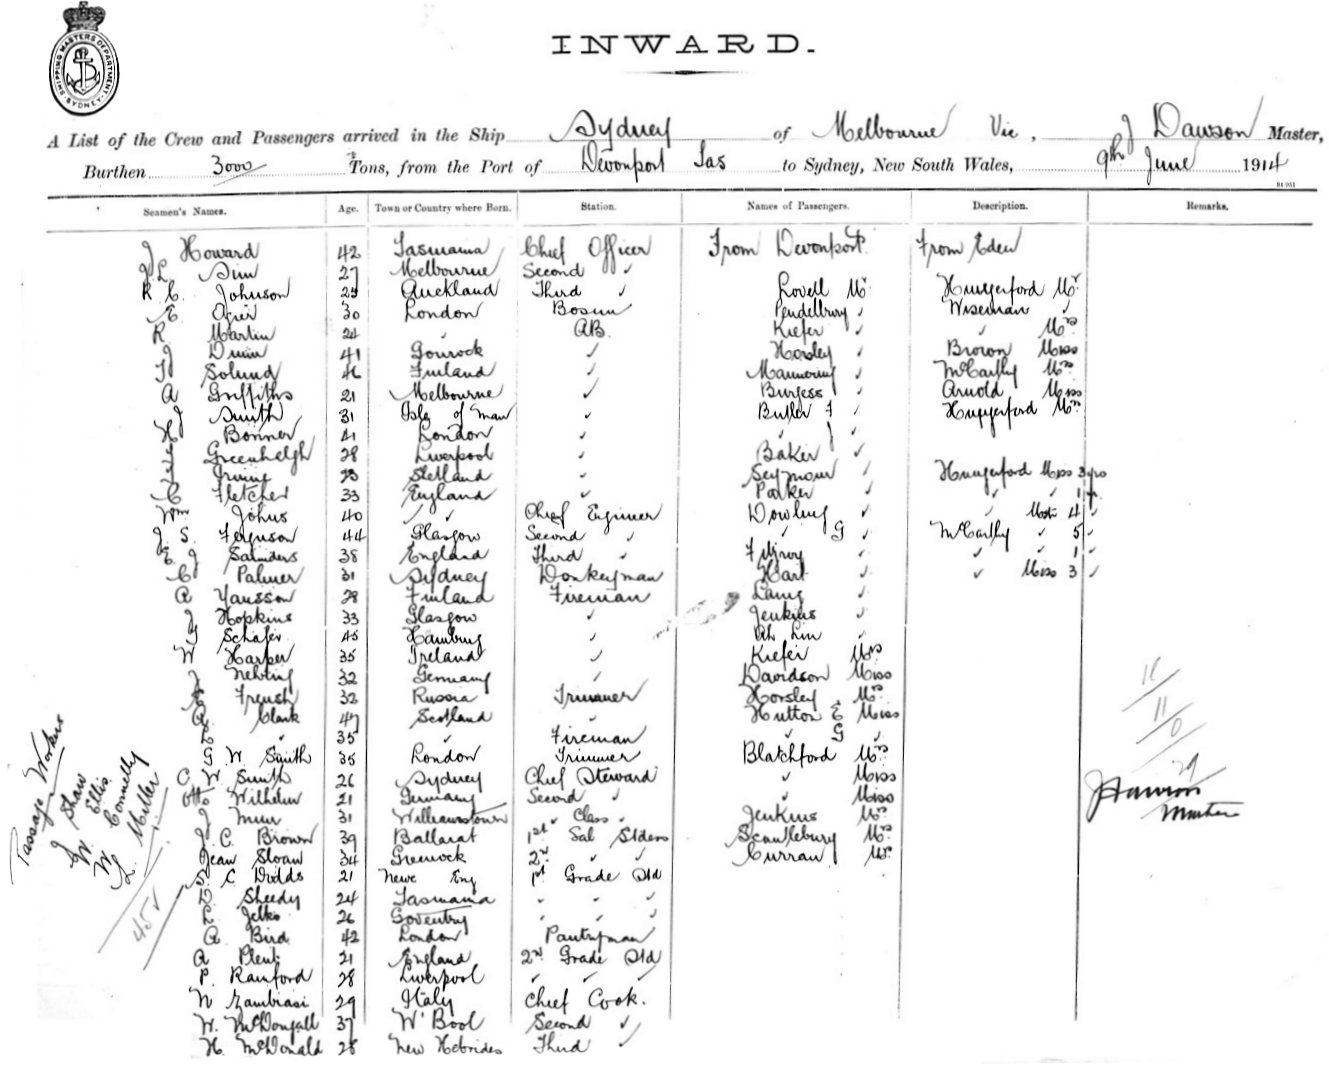 SHIPPING MASTERS DEPARTMENT SYDNEY
INWARD.
A List of the Crew and Passengers arrived in the Ship Sydney of Melbourne Vic, J Dawson Master,
Burthen 3000 Tons, from the Port of Devonport Tas to Sydney, New South Wales, 9th June 1914
Seamen's Names. Age. Town or Country where Born. Station. Names of Passengers. Description. Remarks.
J Howard 42 Tasmania Chief Officer From Devonport From Eden
Sim 27 Melbourne Second ✓
R C Johnson Auckland Third ✓ Lovell Mr Hungerford Mr
E Ogier 30 London Bosun Pendelbury ✓ Wiseman ✓
R Martin 24 ✓ AB Kiefer ✓ ✓ Mrs
J Dunn 41 Gourock ✓ Horsley ✓ Brown Miss
Solund Finland ✓ Mannering ✓ McCarthy Mrs
A Griffiths 21 Melbourne ✓ Burgess ✓ Arnold Miss
J Smith 31 Isle of Man ✓ Butler F ✓ Hungerford Mrs
H Bonner 41 London ✓ ✓ J ✓
Greenhalgh 28 Liverpool ✓ Baker ✓
Irving Shetland ✓ Seymour ✓ Hungerford Miss 3 yrs
C Fletcher 33 England ✓ Parker ✓ ✓ ✓ 1
Wm Johns 40 ✓ ✓ Chief Engineer Dowling ✓ ✓ Mstr 4 ✓
J S. Ferguson 44 Glasgow Second ✓ ✓ G ✓ McCarthy ✓ 5 ✓
E J Saunders 38 England Third ✓ Fitzroy ✓ ✓ ✓ 1 ✓
C Palmer 31 Sydney Donkeyman Hart ✓ ✓ Miss 3 ✓
A Yansson 28 Finland Fireman Laing ✓
J Hopkins 33 Glasgow ✓ Jenkins ✓
Schafer 45 Hamburg ✓ Ah Lin ✓
W Harper 35 Ireland ✓ Kiefer Mrs
32 Germany ✓ Davidson Miss
French 32 Russia Trimmer Horsley Mrs
A Clark 47 Scotland ✓ Hutton E Miss
✓ 35 ✓ Fireman ✓ G ✓
G W. Smith 35 London Trimmer Blatchford Mrs
C W Smith 26 Sydney Chief Steward ✓ Miss
Otto Wilhelm 21 Germany Second ✓ ✓ Miss
J Muir 31 Williamstown ✓ Class ✓ Jenkins Mrs
J C. Brown 39 Ballarat 1st Sal Stdess Scantlebury Mrs
Jean Sloan 34 Greenock 2nd ✓ ✓ Curran Mr
C Dodds 21 Newc Eng 1st Grade Std
D Sheedy 24 Tasmania
L Jelks 26 Coventry
A Bird 42 London Pantryman
A Plent 21 England 2nd Grade Std
P. Rainford 28 Liverpool ✓ ✓ ✓
N Zambiasi 29 Italy Chief Cook.
W. McDougall 37 W'Bool Second ✓
H. McDonald 28 New Hebrides Third ✓
Passage Workers
J Shaw
W Ellis
W Connelly
L Miller
45 ✓
18
11
0
29
J Dawson
Master